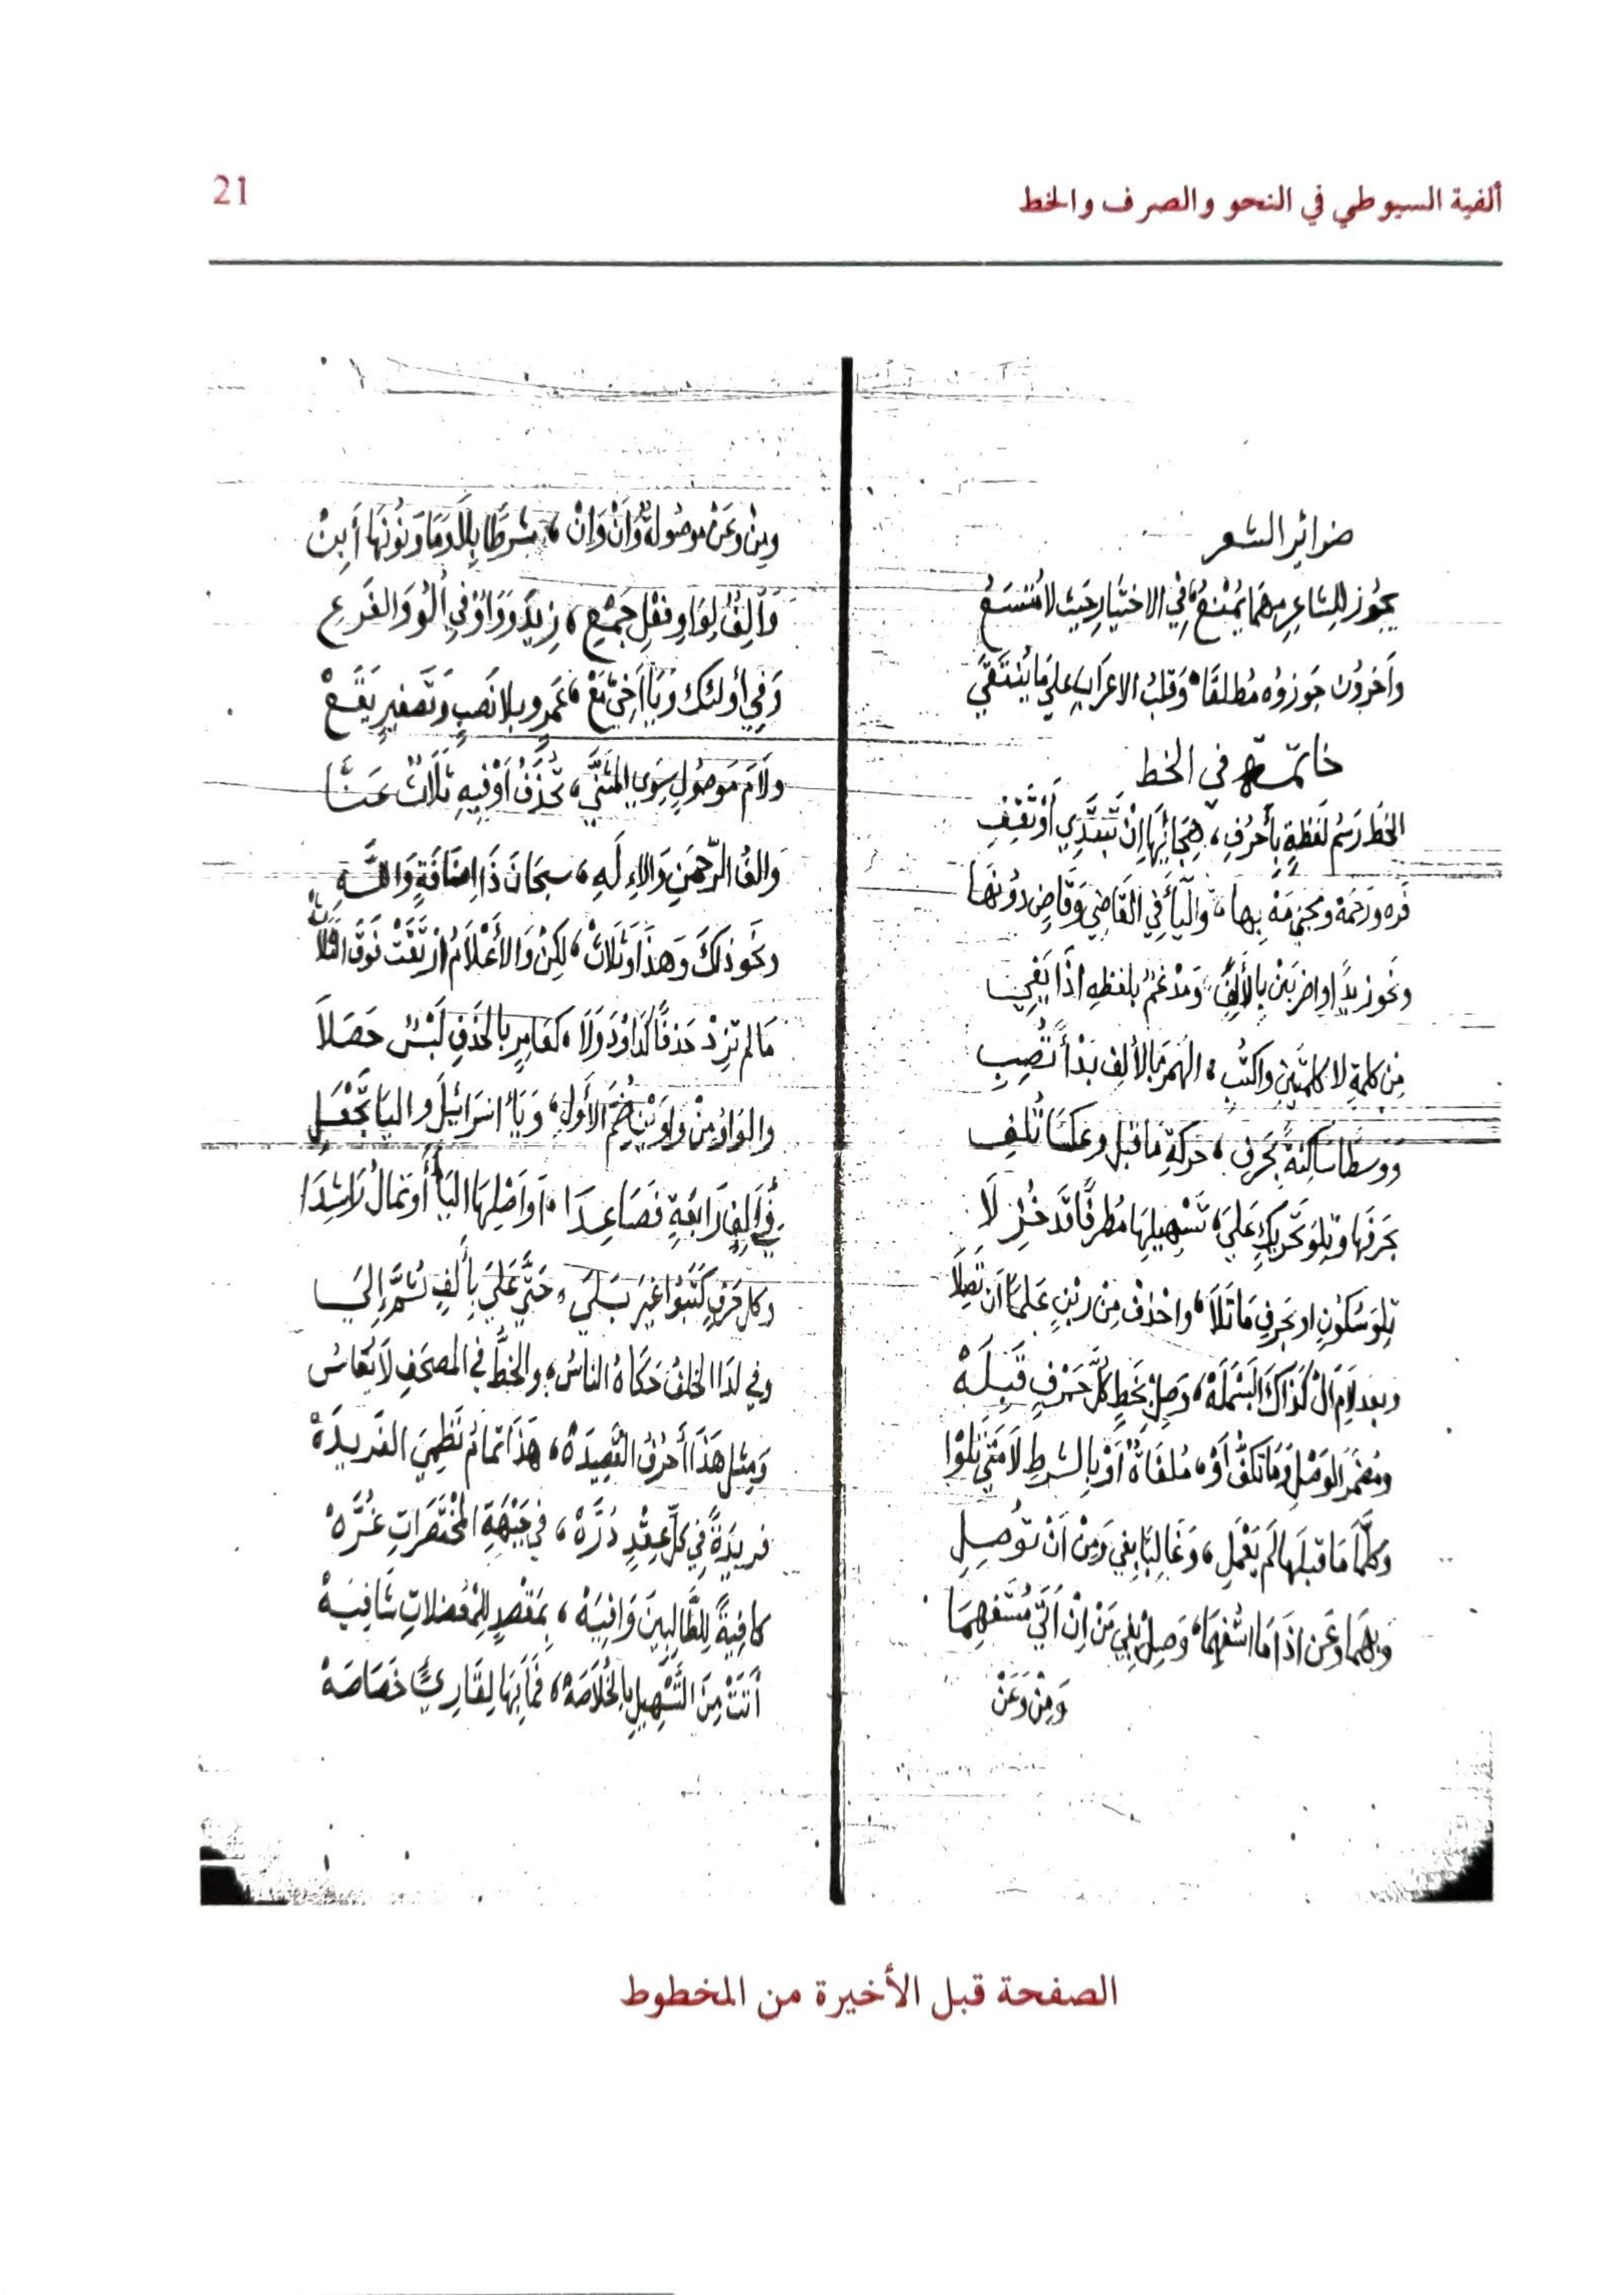 ألفية السيوطي في النحو والصرف والخط
21
ضرائر الشعر
يجُوز للِشاعِرِ مهمَا يُمْنعُ، في الاختيارِ حَيث لا مُتسَعُ
وآخرُون جَوزوُه مُطلقًا، وَقلبُ الاعرَابِ علي مَا يُنتَقَي
خاتمة في الخط
الخَط رَسْمُ لفَظةٍ بأحرُفِ، هِجَائِهَا إنْ تَبتَدِي أوْ تَقِفِ
فَره ورَحمَة ومجئ مَهْ بِها، والَيأ في القَاضِي وَقَاضٍ دوُنهَا
ونَحو زيدًا واضربَنْ بالأَلِفِ، وَمدْغَمٌ بلفظهِ اذَا يَفِي
مِن كلمةٍ لا كلمتَينِ واكتُبِ، الهَمزَ بَالألِف بَدْأً تُصِبِ
ووسطًا ساكِنةً بحَرفِ، حَركَةِ مَا قبل وعَكسًا تُلفِ
بحَرفهَا وتِلوَ تحَريكٍ عَليَ، تسْهِيلِهَا مُطرفًا قَد خُزِلَا
تِلوَ سُكُونٍ او بحَرفِ مَا تَلَا، واحْذِف مِن ابْنٍ عَلمًا أن تَصِلَا
وبعد لامِ الْ كَذَاكَ البَسْمَلَهْ، وَصِلْ بخَطٍ كُلَّ حَرفٍ قَبِلَهْ
ومُضمَر الوَصْلِ وَمَا تكُفُّ أوْ، مُلغَاةً أوْ بِالشرطِ لَا مَتَي تَلوْا
وَكلّمَا مَا قبلَها لمَ يَعْمَلِ، وَغَالِبًا بِفي وَمِنْ أنْ تُوصِلِ
وَبِهمَا وعَن اذَا مَا استُفهِمَا، وَصِلْ بِفي مَنْ إنْ أتَي مُستَفهِمَا
وَمِنْ وَعَنْ
ومِنْ وعَنْ موصُولةً وَأنْ وَإنْ، شرطًا بِلَا وَمَا وَنوُنهَا أَبِنْ
وَأَلِفٌ لِوَاوِ فعْلِ جَمْعِ، زِيدَ وَوَاوٌ في أُلُو وَالفَرعِ
وَفي أولئك وَيَا أُخيّ مَعْ، عَمرٍو بلا نَصبٍ وَتَصغيرٍ يَقَعْ
ولَامَ مَوصُولٍ سِوَي المثَنَّي، تُحذَفُ أوْ فيهِ ثلَاثٌ عَنَّا
والفُ الرّحمنِ وَالإلَهِ، سبحَانَ ذَا إضَافَةٍ وَاللَّهِ
ونحَو ذلكَ وَهذَا وَثلَاثْ، لكِنْ وَالأَعْلَامُ ارْتَقَتْ فَوقَ الثلَاثْ
مَا لم تزِدْ حَذفًا كَدَاوُدَ وَلَا، كعَامِرٍ بالحَذفِ لَبْسٌ حَصَلَا
والوَاوُ مِنْ وَاوَيْنِ ضُمَّ الأَولِ، وَيَأ اسرَائيلَ واليَا تجُعَلِ
في ألِفٍ رَابَعةٍ فصَاعِدَا، أو أصْلِهَا اليَأ أو تمَالُ رَاشِدَا
وكل حَرفٍ كَتَبُوا غيَر بَلَي، حَتّي عَلَي بِأَلفٍ ثُمَّ إِلَي
وفي لَدَا الخلفُ حَكَاهُ الناسُ، والخطُّ في المصحَفِ لَا يُقَاسُ
وَمِثل هَذَا أحرُفُ القَصِيدَهْ، هَذَا تمَامُ نَظِميَ الفَريدَهْ
فريدَةً في كلّ عِقْدٍ دُرَّهْ، في جَبْهَةِ المخْتَصَراتِ غُرَّهْ
كافِيةً للِطَّالِبِينَ وَافِيَهْ، بِمَقْصدٍ للِمُعْضلاتِ شَافِيَهْ
أتَتْ مِنَ التَّسْهِيلِ بِالخُلَاصَهْ، فَمَا بِهَا لِقَارِئٍ خَصَاصَهْ
الصفحة قبل الأخيرة من المخطوط